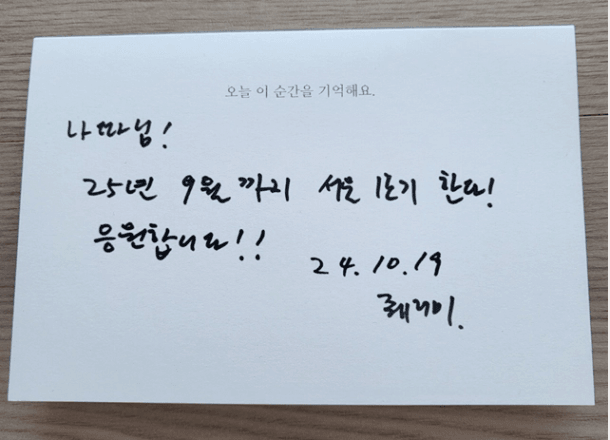 오늘 이 순간을 기억해요.
나따님!
25년 9월 까지 서울 1호기 한다!
응원합니다!!
24.10.19